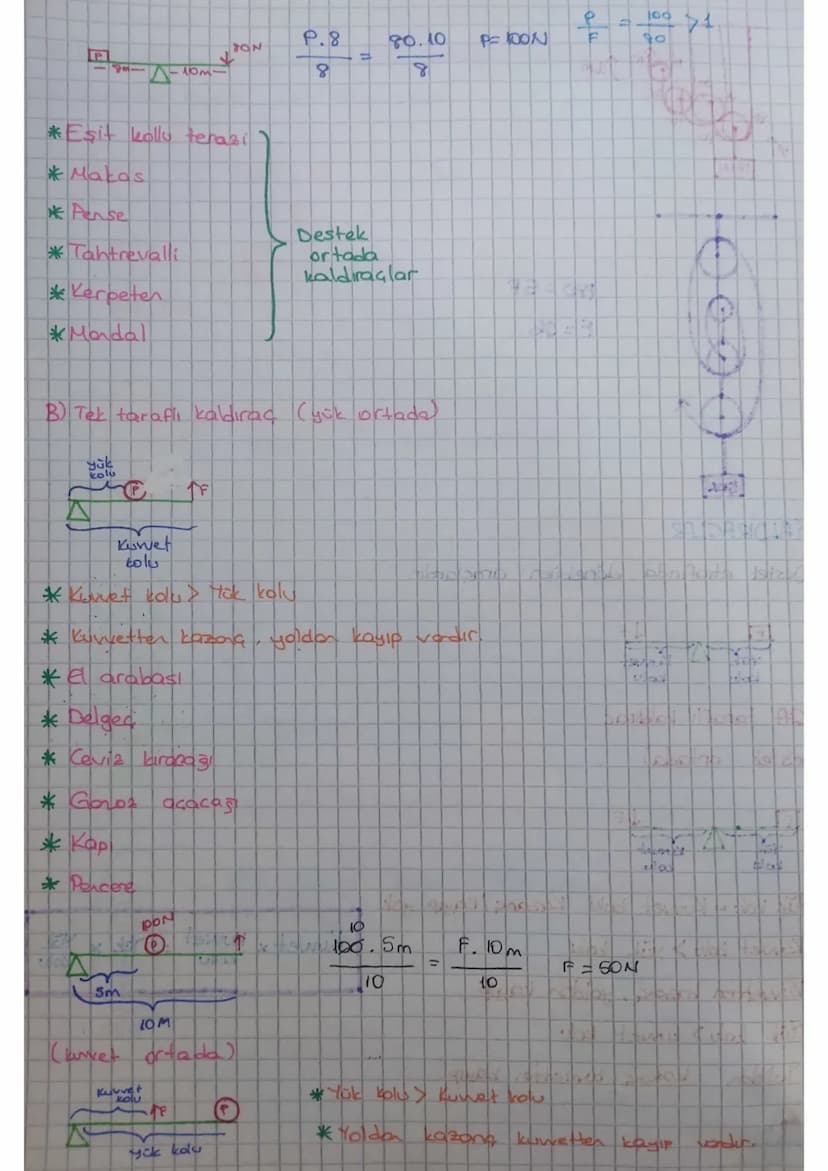 P
8m
10m
80N
P.8 / 8 = 80.10 / 8 P=100N P/F = 100/80 >1
* Eşit kollu terazi
* Makas
* Pense
* Tahtrevalli
* Kerpeten
* Mandal
Destek
ortada
kaldıraçlar
B) Tek taraflı kaldıraç (yük ortada)
yük
kolu
P
F
Kuvvet
kolu
* Kuvvet kolu > Yük kolu
* Kuvvetten kazanç, yoldan kayıp vardır.
* El arabası
* Delgeç
* Ceviz kıracağı
* Gazoz açacağı
* Kapı
* Pencere
100N
P
5m
10M
10
100.5m / 10 = F.10m / 10 F=50N
(kuvvet ortada)
Kuvvet
kolu
F
P
yük kolu
* Yük kolu > Kuvvet kolu
* Yoldan kazanç kuvvetten kayıp vardır.